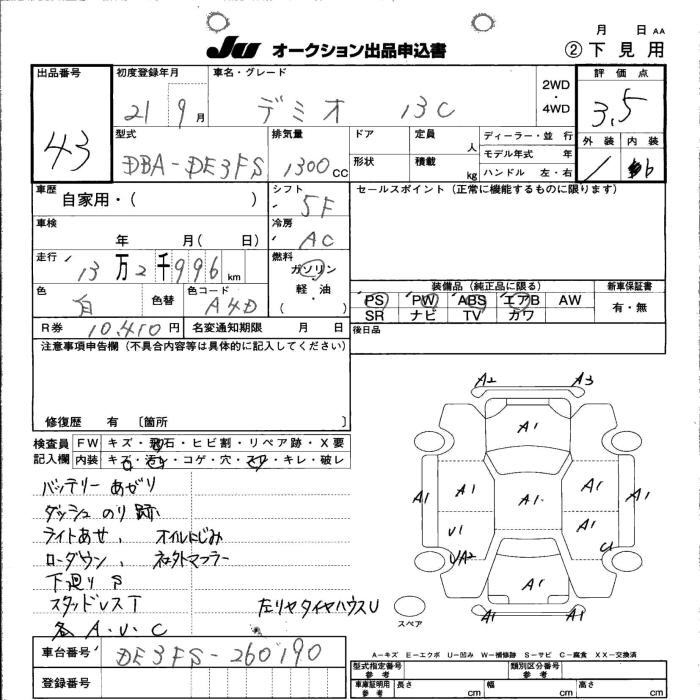 月 日 AA
JU オークション出品申込書 ②下見用
出品番号 43
初度登録年月 21 9月
車名・グレード デミオ 13C
2WD・4WD
評価点 3.5
外装 内装
型式 DBA-DE3FS
排気量 1300cc
ドア 定員 人
形状 積載 kg
ディーラー・並行
モデル年式 年
ハンドル 左・右
車歴 自家用・( )
シフト 5F
セールスポイント(正常に機能するものに限ります)
車検 年 月( 日)
冷房 AC
走行 13万2千996km
燃料 ガソリン・軽油・( )
色 白 色替 色コード A4D
装備品(純正品に限る) 新車保証書
PS PW ABS エアB AW 有・無
SR ナビ TV カワ
R券 10,410円 名変通知期限 月 日
後日品
注意事項申告欄(不具合内容等は具体的に記入してください)
修復歴 有 〔箇所 〕
検査員記入欄 FW キズ・飛石・ヒビ割・リペア跡・X要
内装 キズ・汚れ・コゲ・穴・スレ・キレ・破レ
バッテリーあがり
ダッシュのり跡
ライトあせ、オイルにじみ
ローダウン、社外マフラー
下廻りS
スタッドレスT 左リヤタイヤハウスU
各A.U.C
A2 A3
A1
A1 A1 A1 A1 A1
U1 A1
UA2 U1
A1
A1 A1
スペア
A-キズ E-エクボ U-凹み W-補修跡 S-サビ C-腐食 XX-交換済
車台番号 DE3FS-260190
登録番号
型式指定番号 参考 類別区分番号 参考
車庫証明用 参考 長さ cm 幅 cm 高さ cm